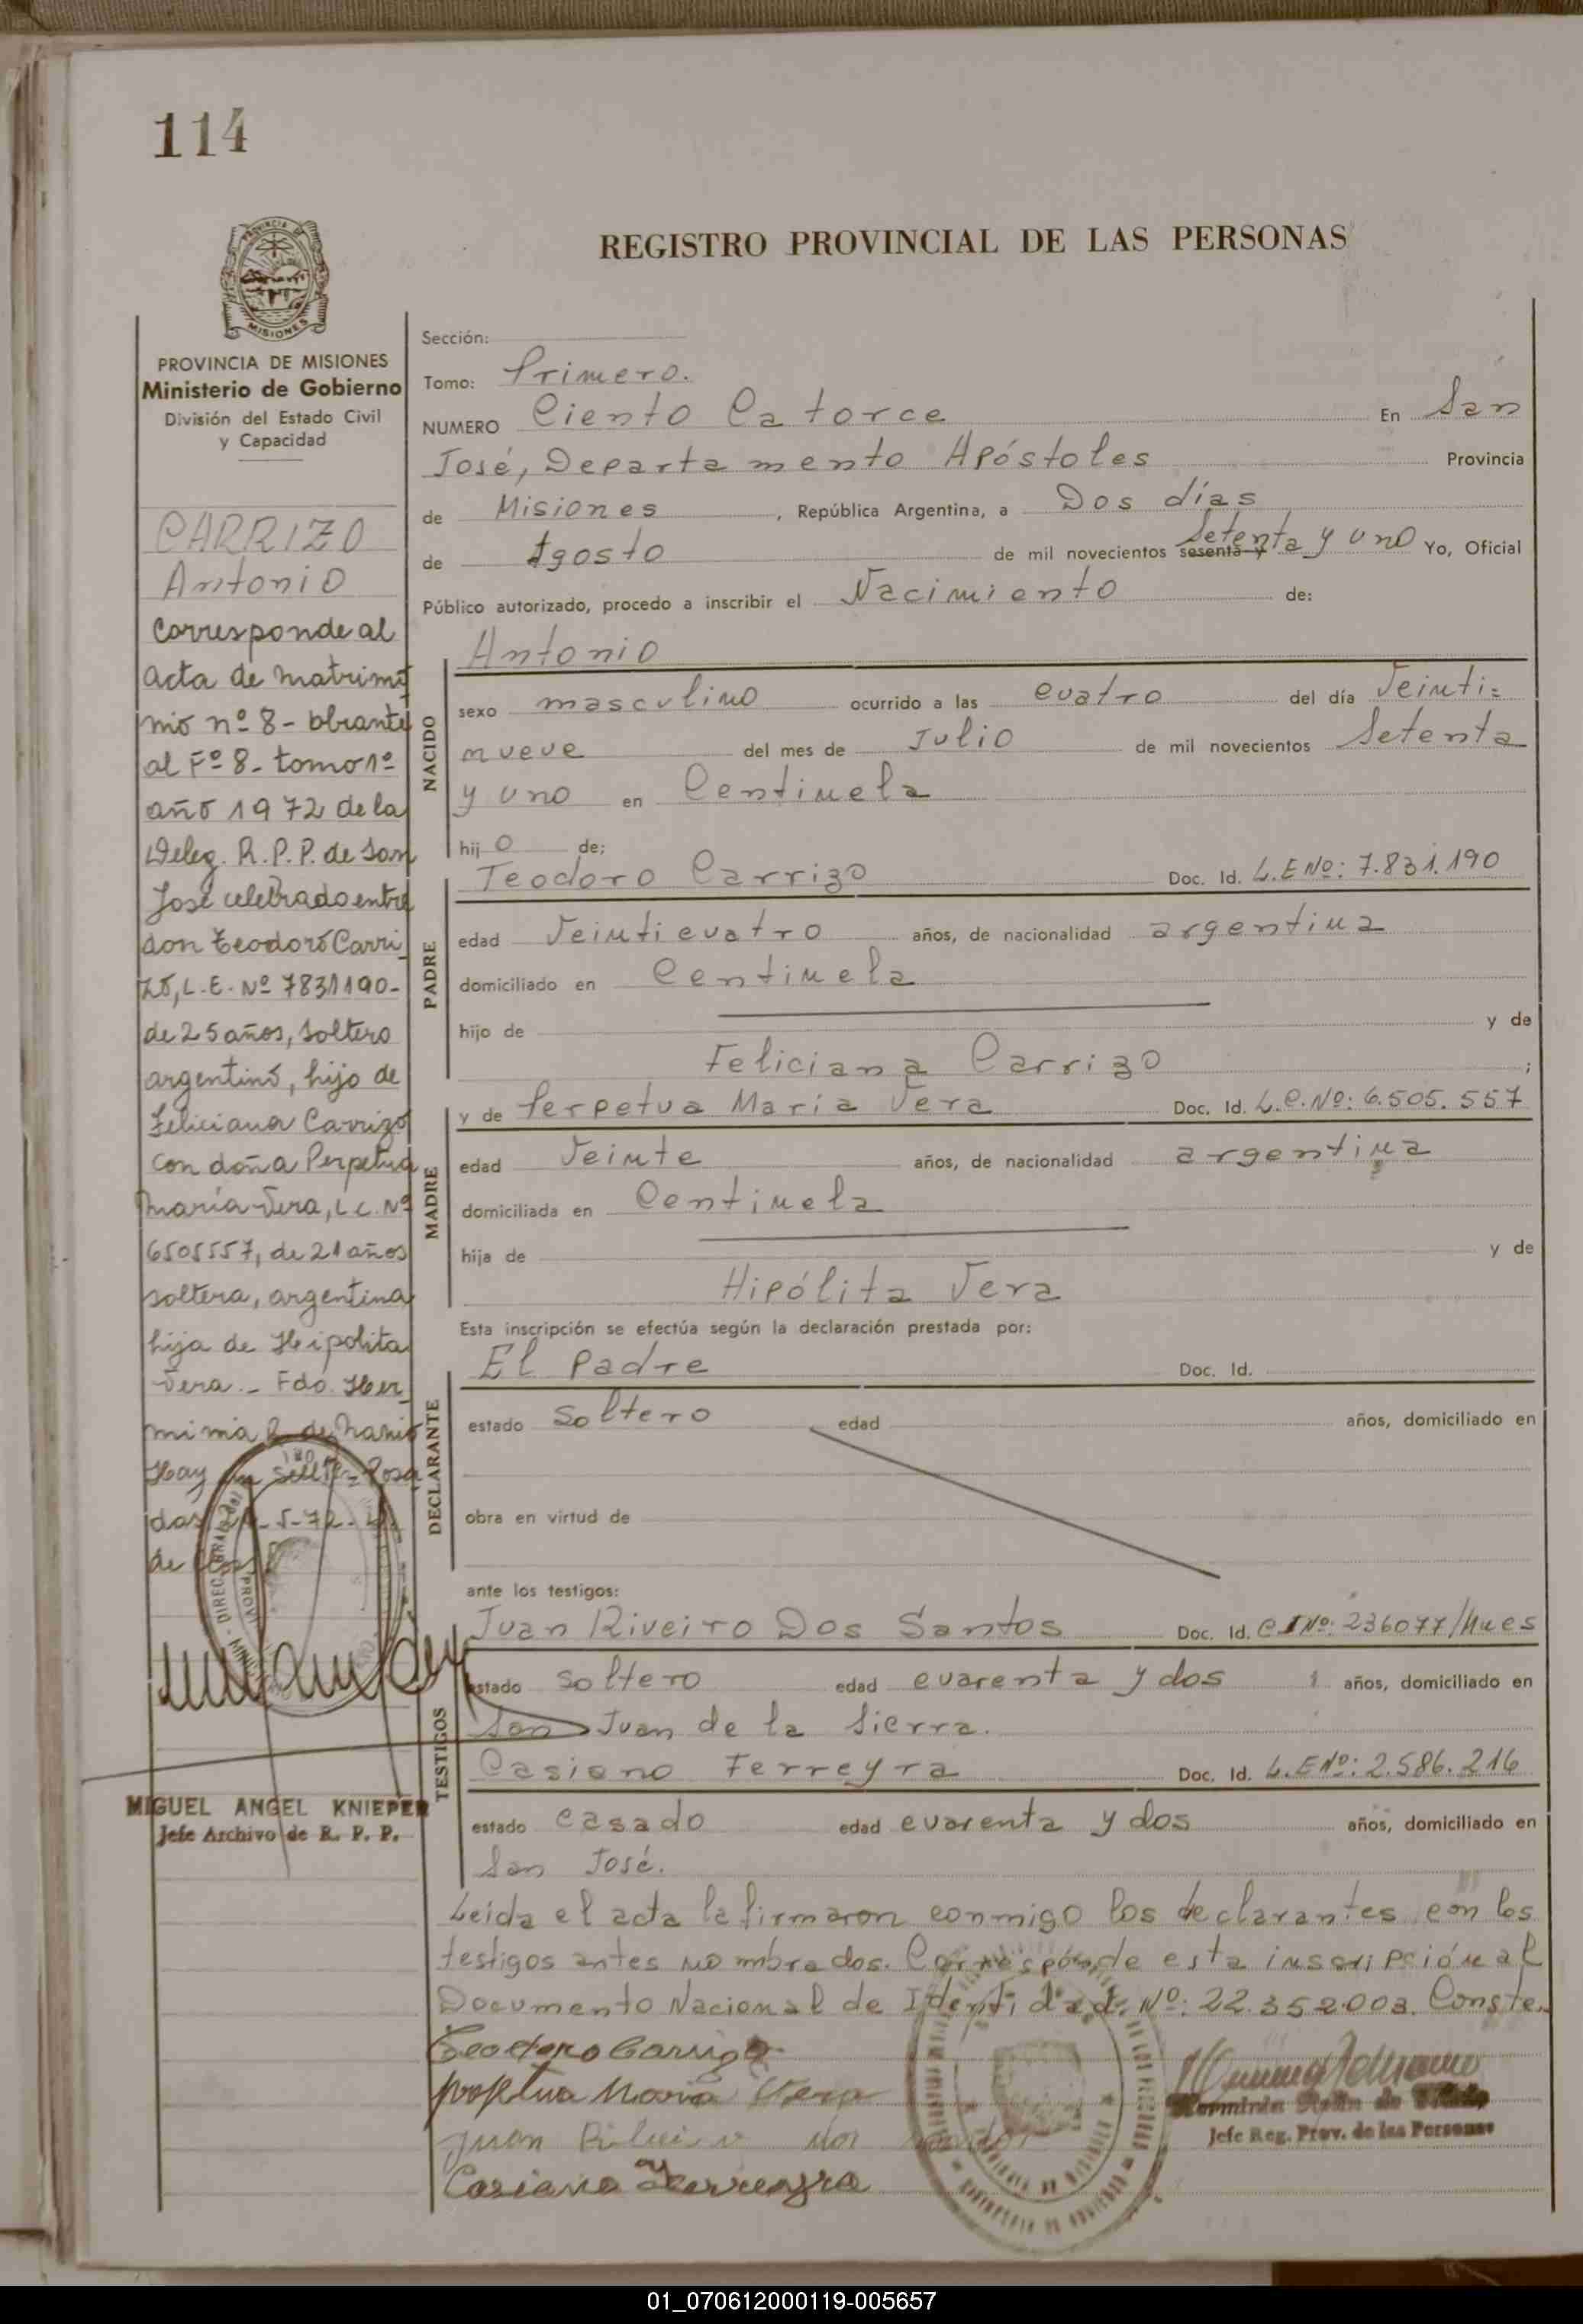 114
REGISTRO PROVINCIAL DE LAS PERSONAS
MISIONES
PROVINCIA DE MISIONES
Ministerio de Gobierno
División del Estado Civil
y Capacidad
CARRIZO
Antonio
Corresponde al
acta de matrimo
nio nº 8 - obrante
al Fº 8 - tomo 1º
año 1972 de la
Deleg. R.P.P. de San
José celebrado entre
don Teodoro Carri
zo, L.E. Nº 7831190-
de 25 años, soltero
argentino, hijo de
Feliciana Carrizo
con doña Perpetua
María Vera, L.C. Nº
6505557, de 21 años
soltera, argentina
hija de Hipolita
Vera.- Fdo. Her
minia R. de
Hay un sello - Posa
das, -5-72-
de
MIGUEL ANGEL KNIEPER
Jefe Archivo de R. P. P.
Sección:
Tomo: Primero.
NUMERO Ciento Catorce En San
José, Departamento Apóstoles Provincia
de Misiones, República Argentina, a Dos días
de Agosto de mil novecientos sesenta y Setenta y uno Yo, Oficial
Público autorizado, procedo a inscribir el Nacimiento de:
Antonio
NACIDO
sexo masculino ocurrido a las cuatro del día Veinti=
nueve del mes de Julio de mil novecientos Setenta
y uno en Centinela
hijo de:
Teodoro Carrizo Doc. Id. L.E Nº: 7.831.190
PADRE
edad Veinticuatro años, de nacionalidad argentina
domiciliado en Centinela
hijo de y de
Feliciana Carrizo ;
y de Perpetua María Vera Doc. Id. L.C. Nº: 6.505.557
MADRE
edad Veinte años, de nacionalidad argentina
domiciliada en Centinela
hija de y de
Hipólita Vera
Esta inscripción se efectúa según la declaración prestada por:
El Padre Doc. Id.
DECLARANTE
estado Soltero edad años, domiciliado en
obra en virtud de
ante los testigos:
Juan Riveiro Dos Santos Doc. Id. C I Nº: 236077/
TESTIGOS
estado soltero edad cuarenta y dos años, domiciliado en
San Juan de la Sierra.
Casiano Ferreyra Doc. Id. L.E Nº: 2.586.216
estado casado edad cuarenta y dos años, domiciliado en
San José.
Leída el acta la firmaron conmigo los declarantes con los
testigos antes nombrados. Corresponde esta inscripción al
Documento Nacional de Identidad: Nº: 22.352.003. Conste.
Teodoro Carrizo
perpetua Maria Vera
Juan
Casiano Ferreyra
Jefe Reg. Prov. de las Personas
01_070612000119-005657